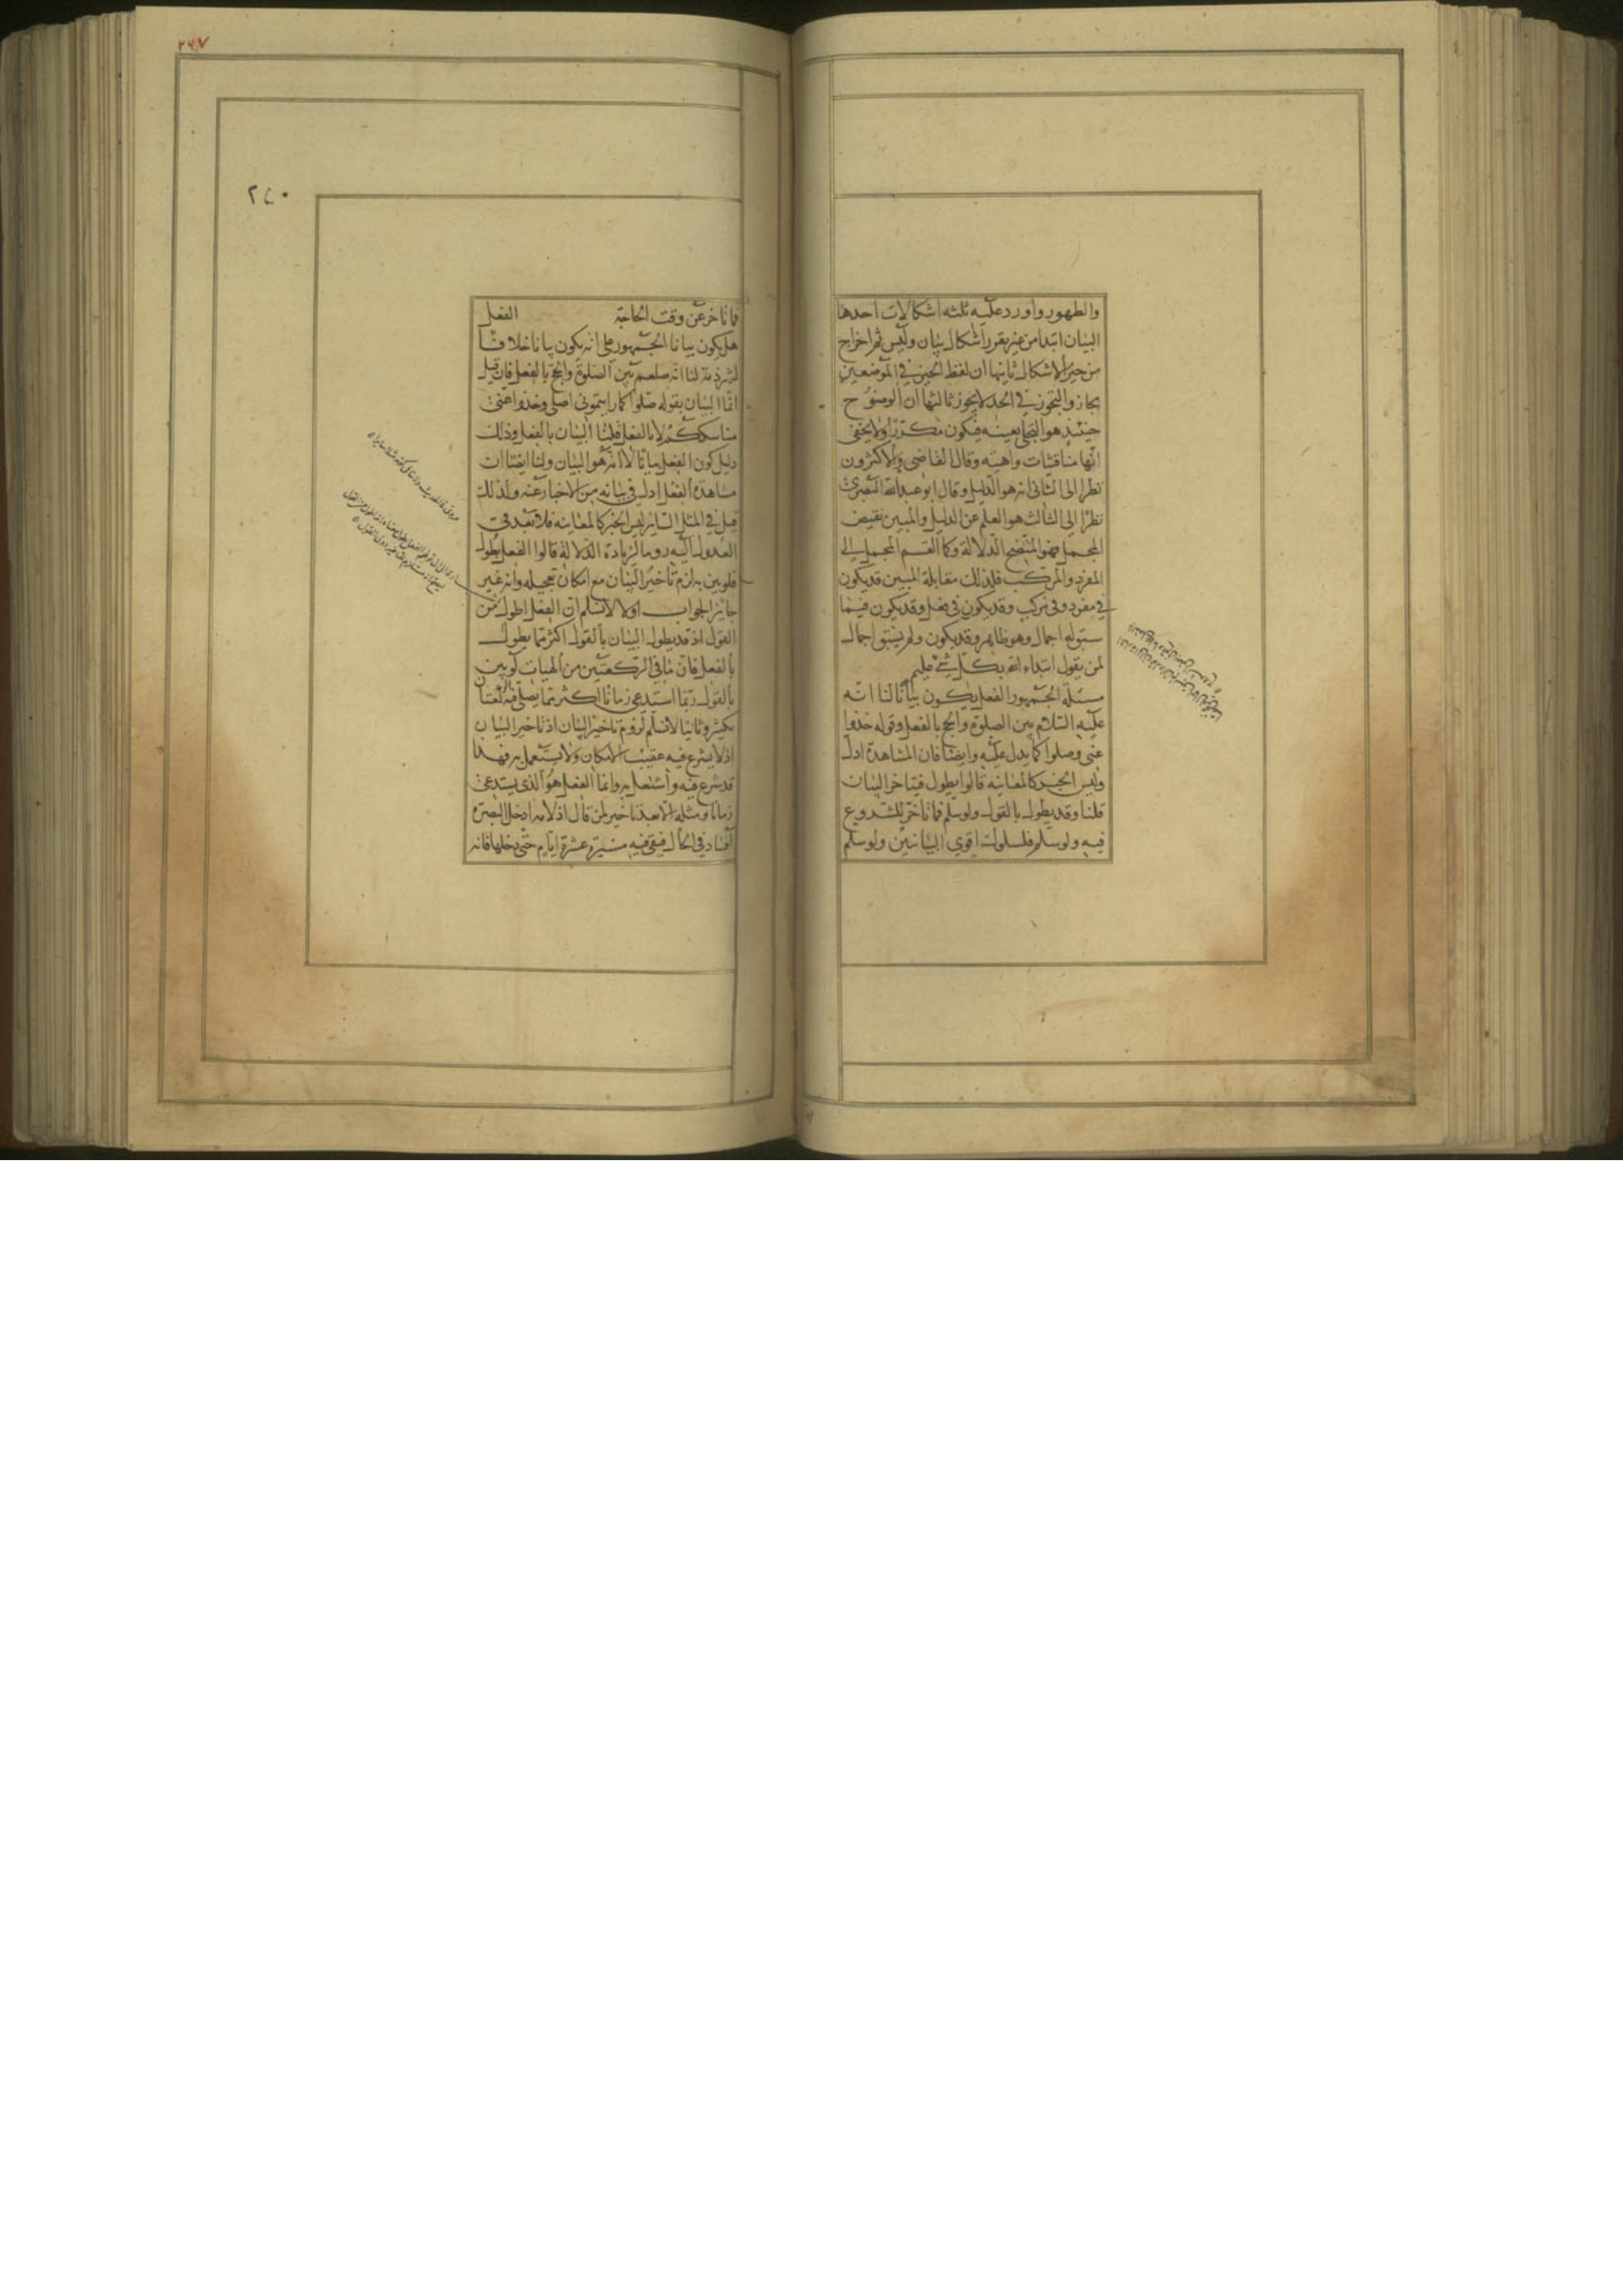 والظهور واورد عليه ثلثة اشكالات احدها
البيان ابتدا من غير تقرر اشكال بيان وليس ثم اخراج
من حيز الاشكال ثانيها ان لفظ الحيز في الموضعين
مجاز والتجوز في الحد لا يجوز ثالثها ان الوضوح
حينئذ هو التجلى بعينه فيكون مكررا ولا يخفى
انها مناقشات واهية وقال القاضى والاكثرون
نظرا الى الثانى انه هو الدليل وقال ابو عبد الله البصرى
نظرا الى الثالث هو العلم عن الدليل والمبين نقيض
المجمل فهو المتضح الدلالة وكما انقسم المجمل الى
المفرد والمركب فلذلك مقابلة المبين قد يكون
في مفرد وفى مركب وقد يكون في فعل وقد يكون فيما
سبق له اجمال وهو ظاهر وقد يكون ولم يسبق اجمال
لمن يقول ابتداء الله بكل شئ عليم
مسئلة الجمهور الفعل يكون بيانا لنا انه
عليه السلام بين الصلوة والحج بالفعل وقوله خذوا
عنى وصلوا كما يدل عليه وايضا فان المشاهدة ادل
وليس الخبر كالمعاينة قالوا يطول فيتاخر البيان
قلنا وقد يطول بالقول ولو سلم فما تاخر للشروع
فيه ولو سلم فلسلوك اقوى البيانين ولو سلم
٢٦٧
٢٤٠
فما تاخر عن وقت الحاجة الفعل
هل يكون بيانا الجمهور على انه يكون بيانا خلافا
لشرذمة لنا انه صلعم بين الصلوة والحج بالفعل فان قيل
انما البيان بقوله صلوا كما رايتمونى اصلى وخذوا عنى
مناسككم لا بالفعل قلنا البيان بالفعل وذلك
دليل كون الفعل بيانا لا انه هو البيان ولنا ايضا ان
مشاهدة الفعل ادل في بيانه من الاخبار عنه ولذلك
قيل في المثل الساير ليس الخبر كالمعاينة فلا تبعد في
العدول اليه روما لزيادة الدلالة قالوا الفعل يطول
فلو بين به لزم تاخير البيان مع امكان تعجيله وانه غير
جايز الجواب اولا لا نسلم ان الفعل اطول من
القول اذ قد يطول البيان بالقول اكثر مما يطول
بالفعل فان ما في الركعتين من الهيات لو بين
بالقول ربما استدعى زمانا اكثر مما يصلى فيه الركعتان
بكثير وثانيا لا نسلم لزوم تاخير البيان اذ تاخير البيان
ان لا يشرع فيه عقيب الامكان ولا يستعمل به فهذا
قد شرع فيه واشتغل به وانما الفعل هو الذى يستدعى
زمانا ومثله لا يعد تاخير لمن قال لغلامه ادخل البصرة
فسار في الحال فبقى في مسيره عشرة ايام حتى دخلها فانه